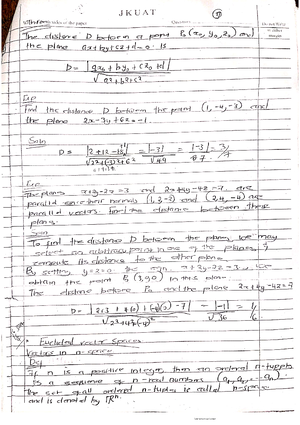 JKUAT
The distance D between a point P₀(x₀, y₀, z₀) and
the plane ax + by + cz + d = 0 is
D = |ax₀ + by₀ + cz₀ + d|
√a² + b² + c²
Find the distance D between the point (1, -4, -3) and
the plane 2x - 3y + 6z = -1
Soln
D = |2 + 12 - 18 + 1| = |-3| = 3/7
√2² + (-3)² + 6² √49 7
The planes x + 2y - 2z = 3 and 2x + 4y - 4z = 7 are
parallel since their normals (1, 2, -2) and (2, 4, -4) are
parallel vectors. Find the distance between these
planes.
Soln
To find the distance D between the planes, we may
select an arbitrary point in one of the planes &
compute its distance to the other plane.
By setting y = z = 0 in the eqn x + 2y - 2z = 3, we
obtain the point P₀(3, 0, 0) in this plane
The distance between P₀ and the plane 2x + 4y - 4z = 7
D = |2·3 + 4(0) + (-4)(0) - 7| = |-1| = 1/6
√2² + 4² + (-4)² √36
Euclidean vector spaces
Vectors in n-space
Def
If n is a positive integer, then an ordered n-tuple
is a sequence of n-real numbers (a₁, a₂, ... an).
The set of all ordered n-tuples is called n-space
and is denoted by ℝⁿ.